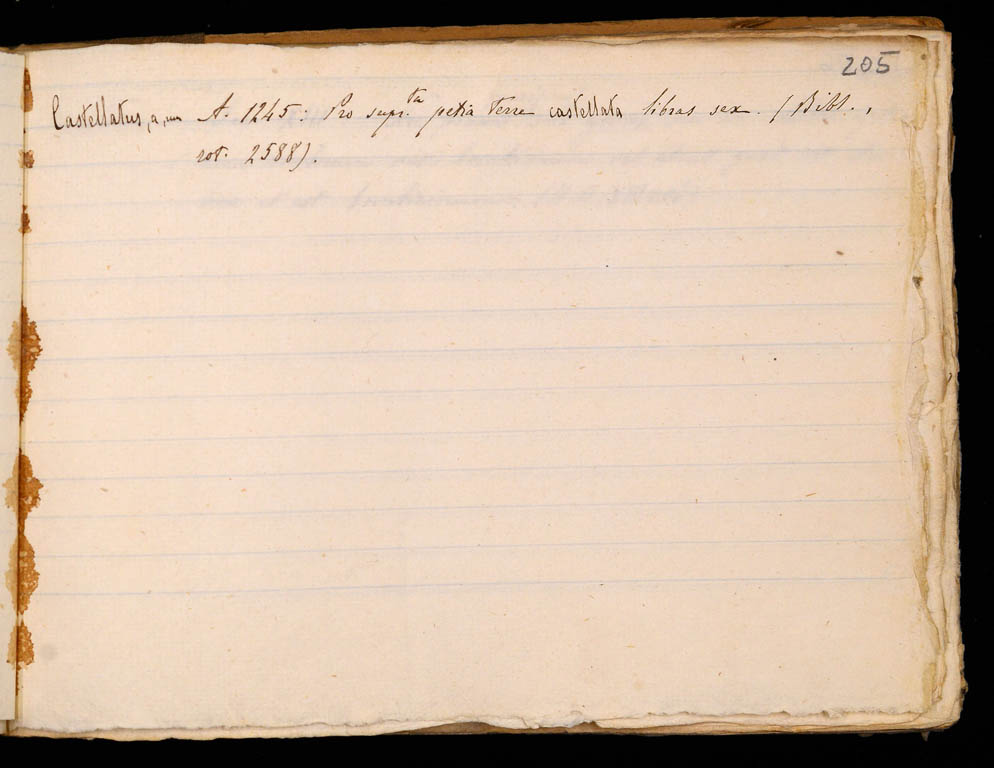 205
Castellatus, a, um A. 1245: Pro supr.ta petia terre castellata libras sex. (Bibl.,
rot. 2588).